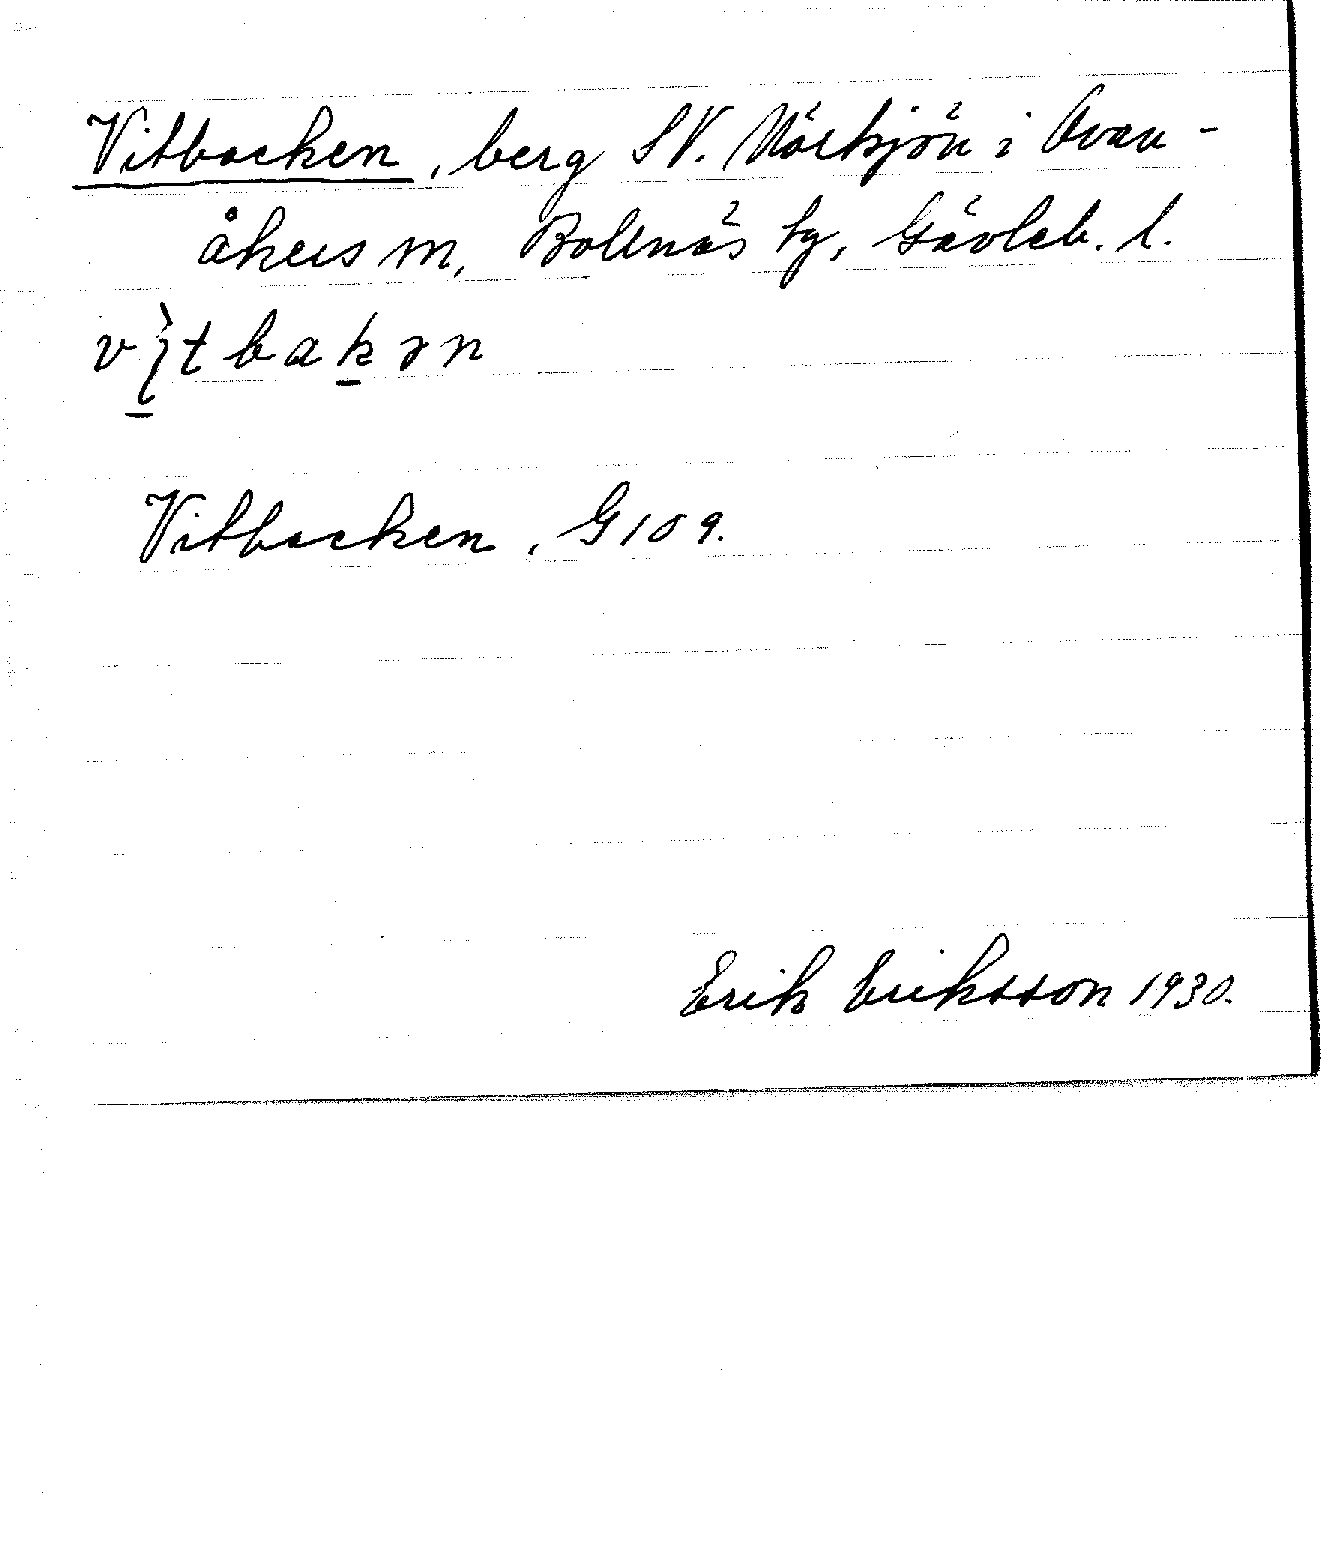 Vitbacken, berg SV. Mörtsjön i Ovan-
åkers sn, Bollnäs tg, Gävleb. l.
vi̠tbak̠ən
Vitbacken, G 109.
Erik Eriksson 1930.